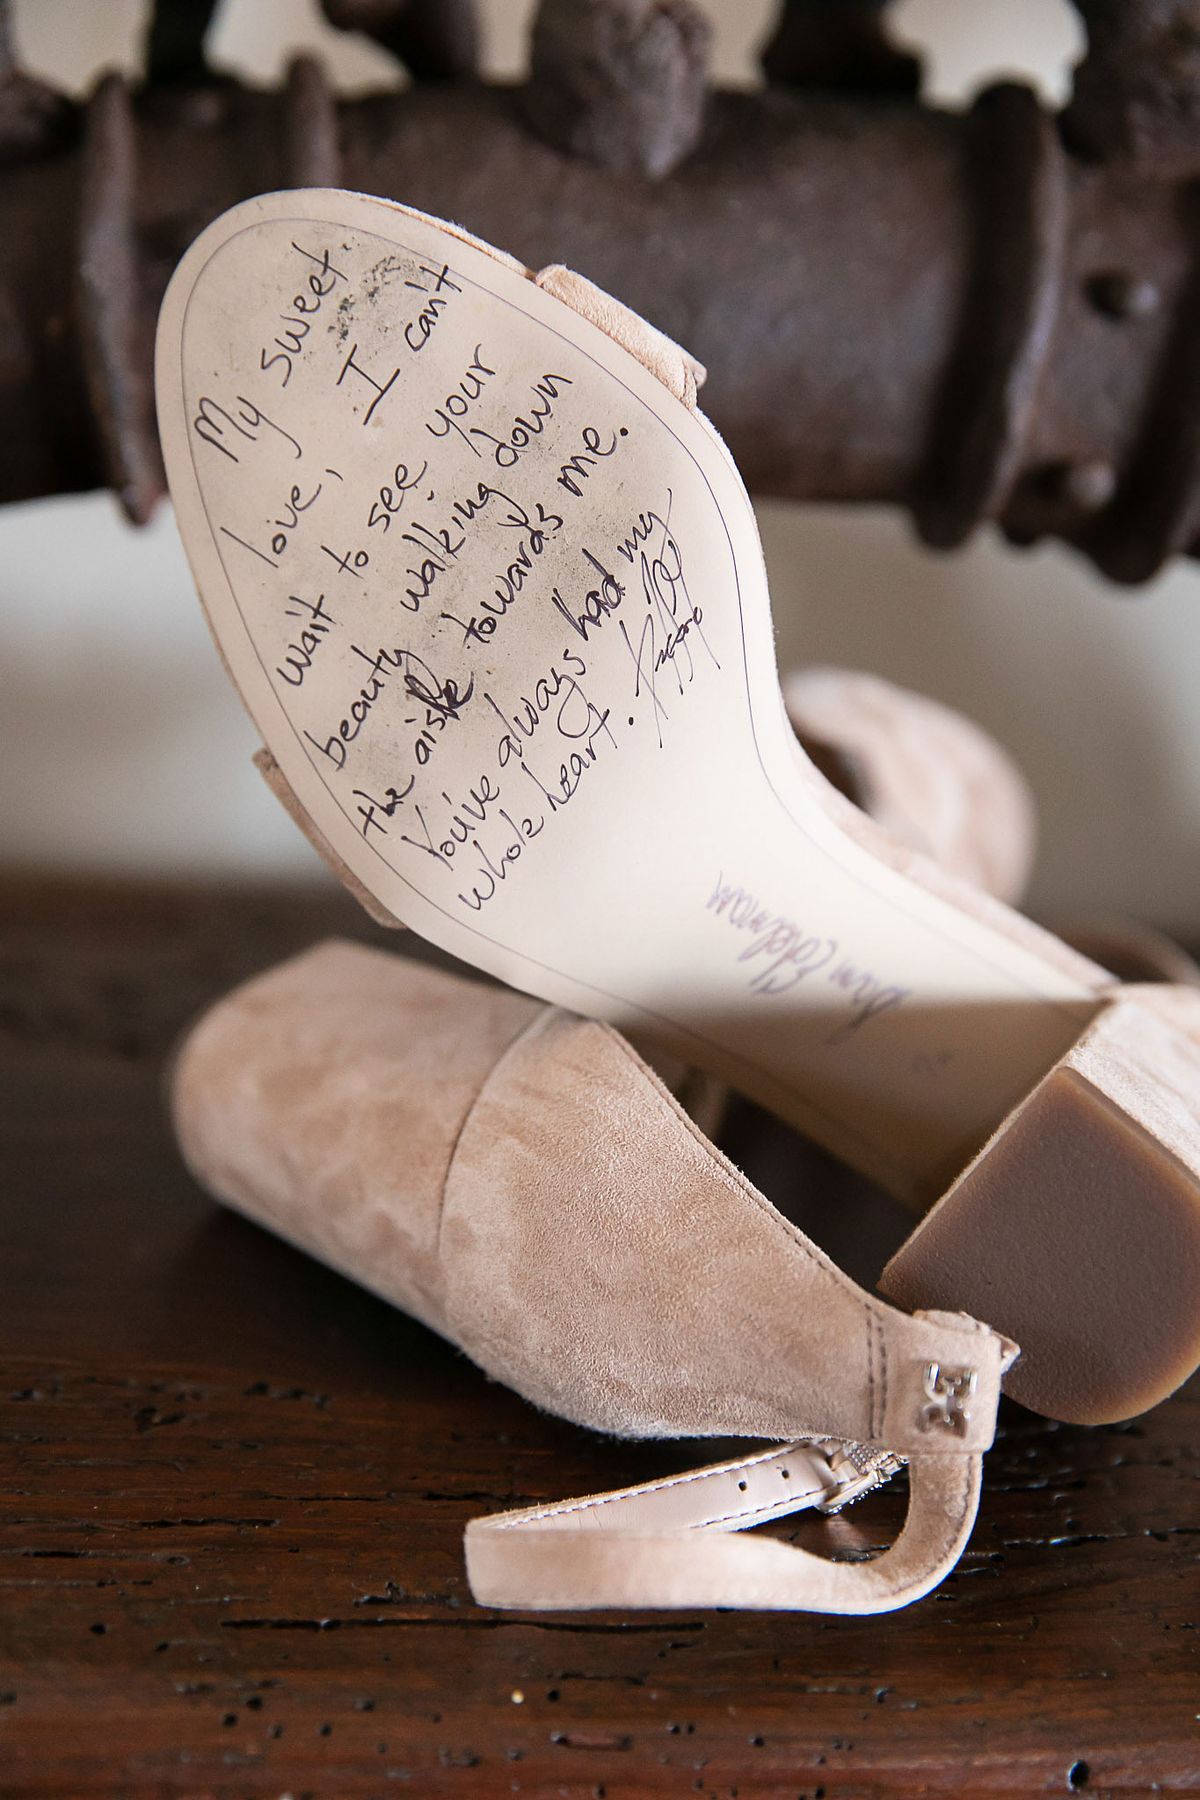 My sweet
love, I can't
wait to see your
beauty walking down
the aisle towards me.
You've always had my
whole heart.
Sam Edelman